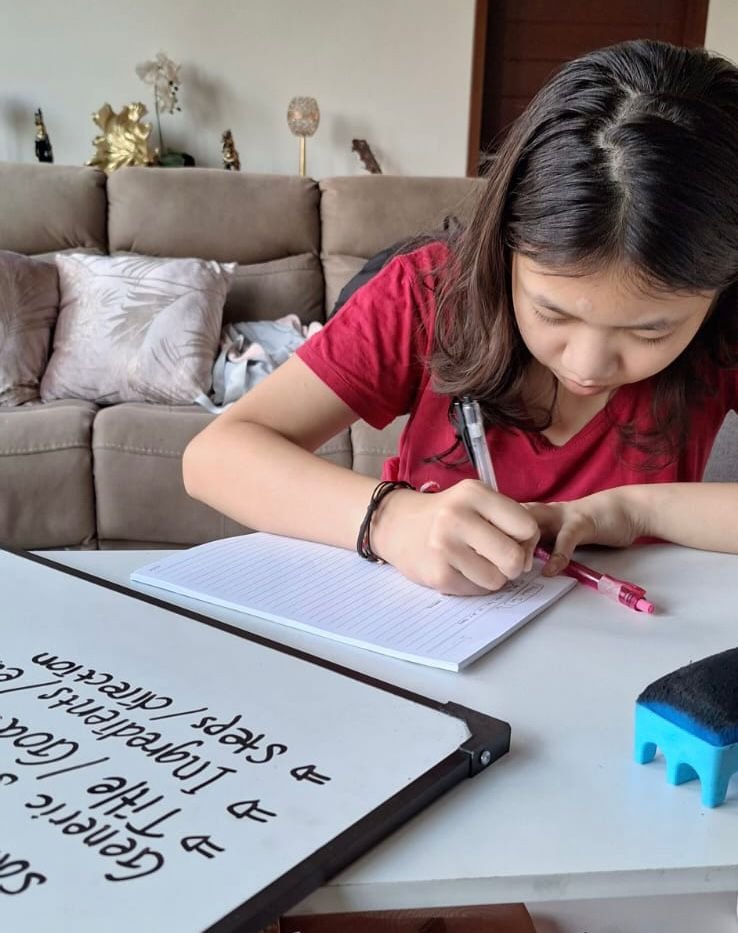 Generic s
⇒ Title / Goa
⇒ Ingredients /
⇒ steps / direction